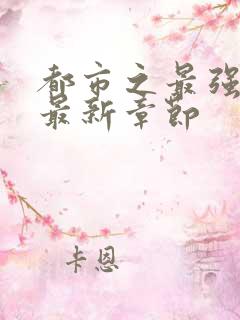 都市之最强
最新章节
卡恩